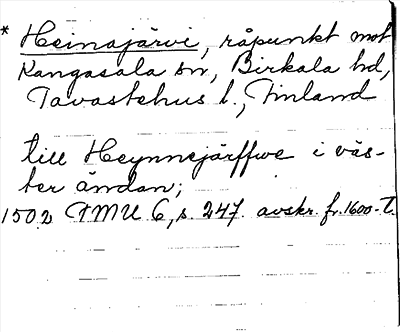 * Heinajärvi, råpunkt mot
Kangasala sn, Birkala hd,
Tavastehus l., Finland
till Heynnejärffwe i väs-
ter ändan;
1502 FMU 6, s. 247. avskr. fr. 1600-t.